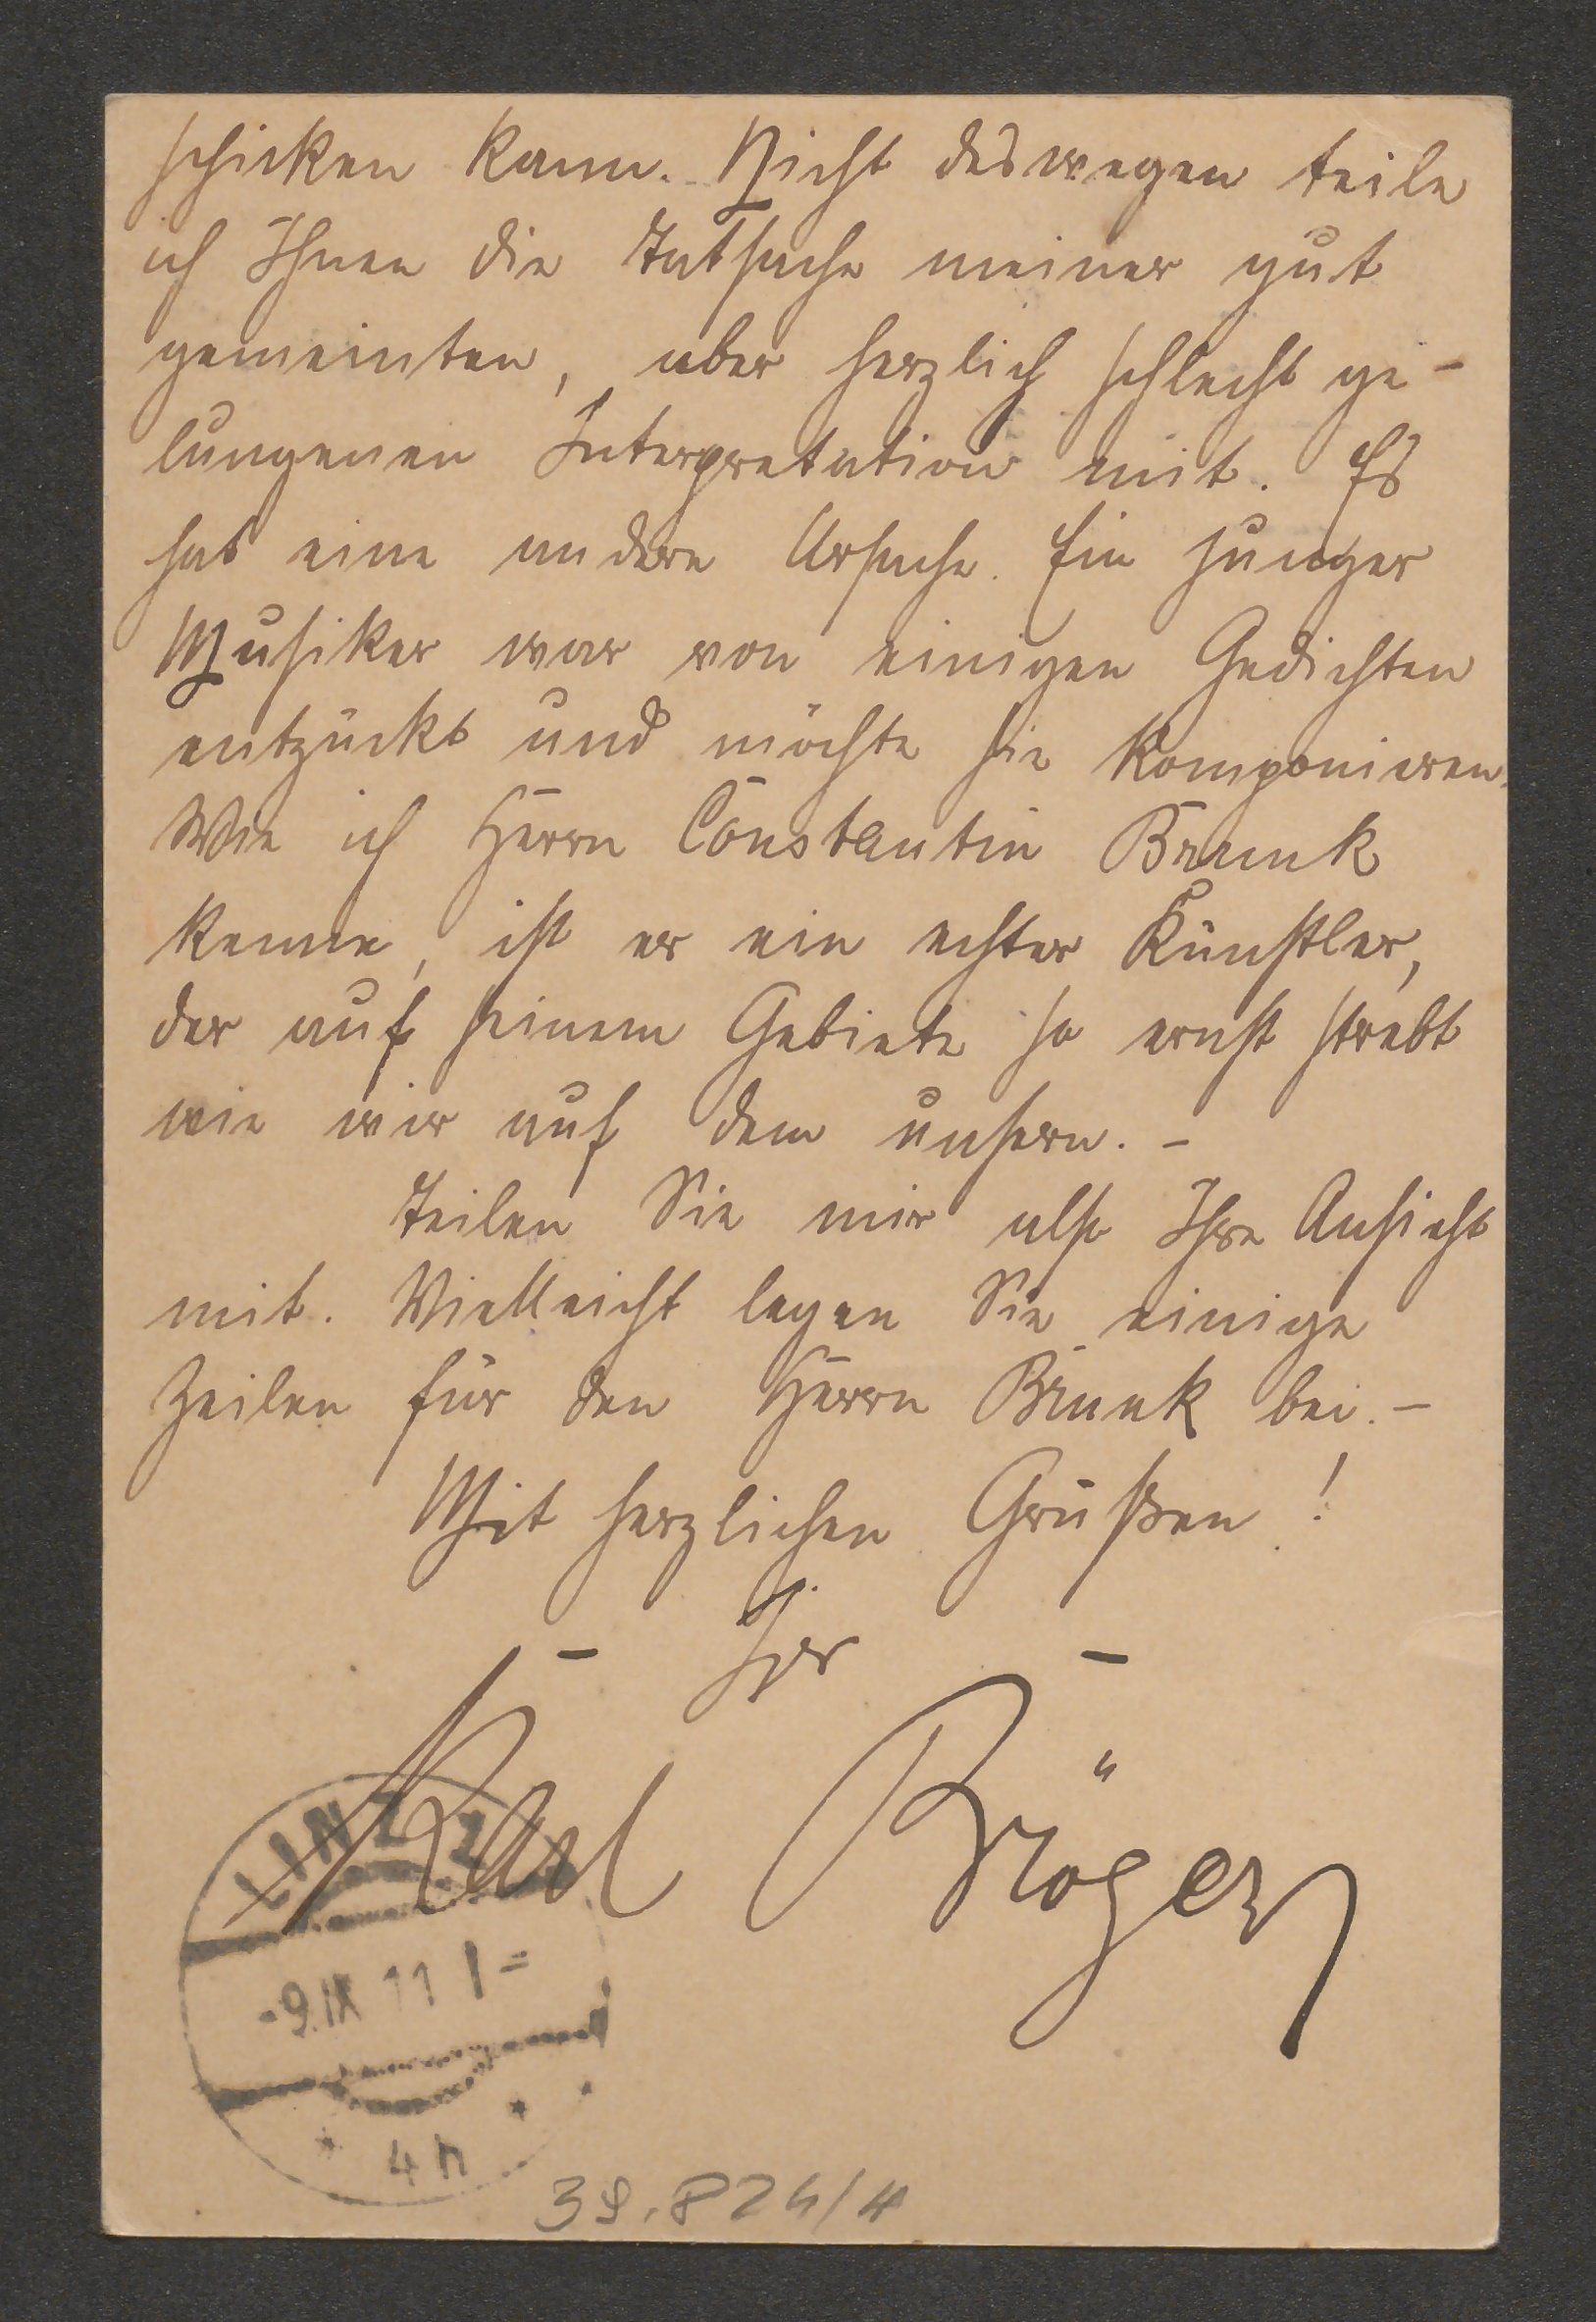 schicken kann. Nicht deswegen teile
ich Ihnen die Tatsache meiner gut
gemeinten, aber herzlich schlecht ge-
lungenen Interpretation mit. Es
hat eine andere Ursache. Ein junger
Musiker war von einigen Gedichten
entzückt und möchte sie komponieren.
Wie ich Herrn Constantin Brunk
kenne, ist er ein echter Künstler,
der auf seinem Gebiete so ernst strebt
wie wir auf dem unsern. -
Teilen Sie mir also Ihre Ansicht
mit. Vielleicht legen Sie einige
Zeilen für den Herrn Brunk bei. -
Mit herzlichen Grüßen!
- Ihr -
Karl Bröger
LINZ 2
-9.IX 11 I=
* 4h *
39.824/4